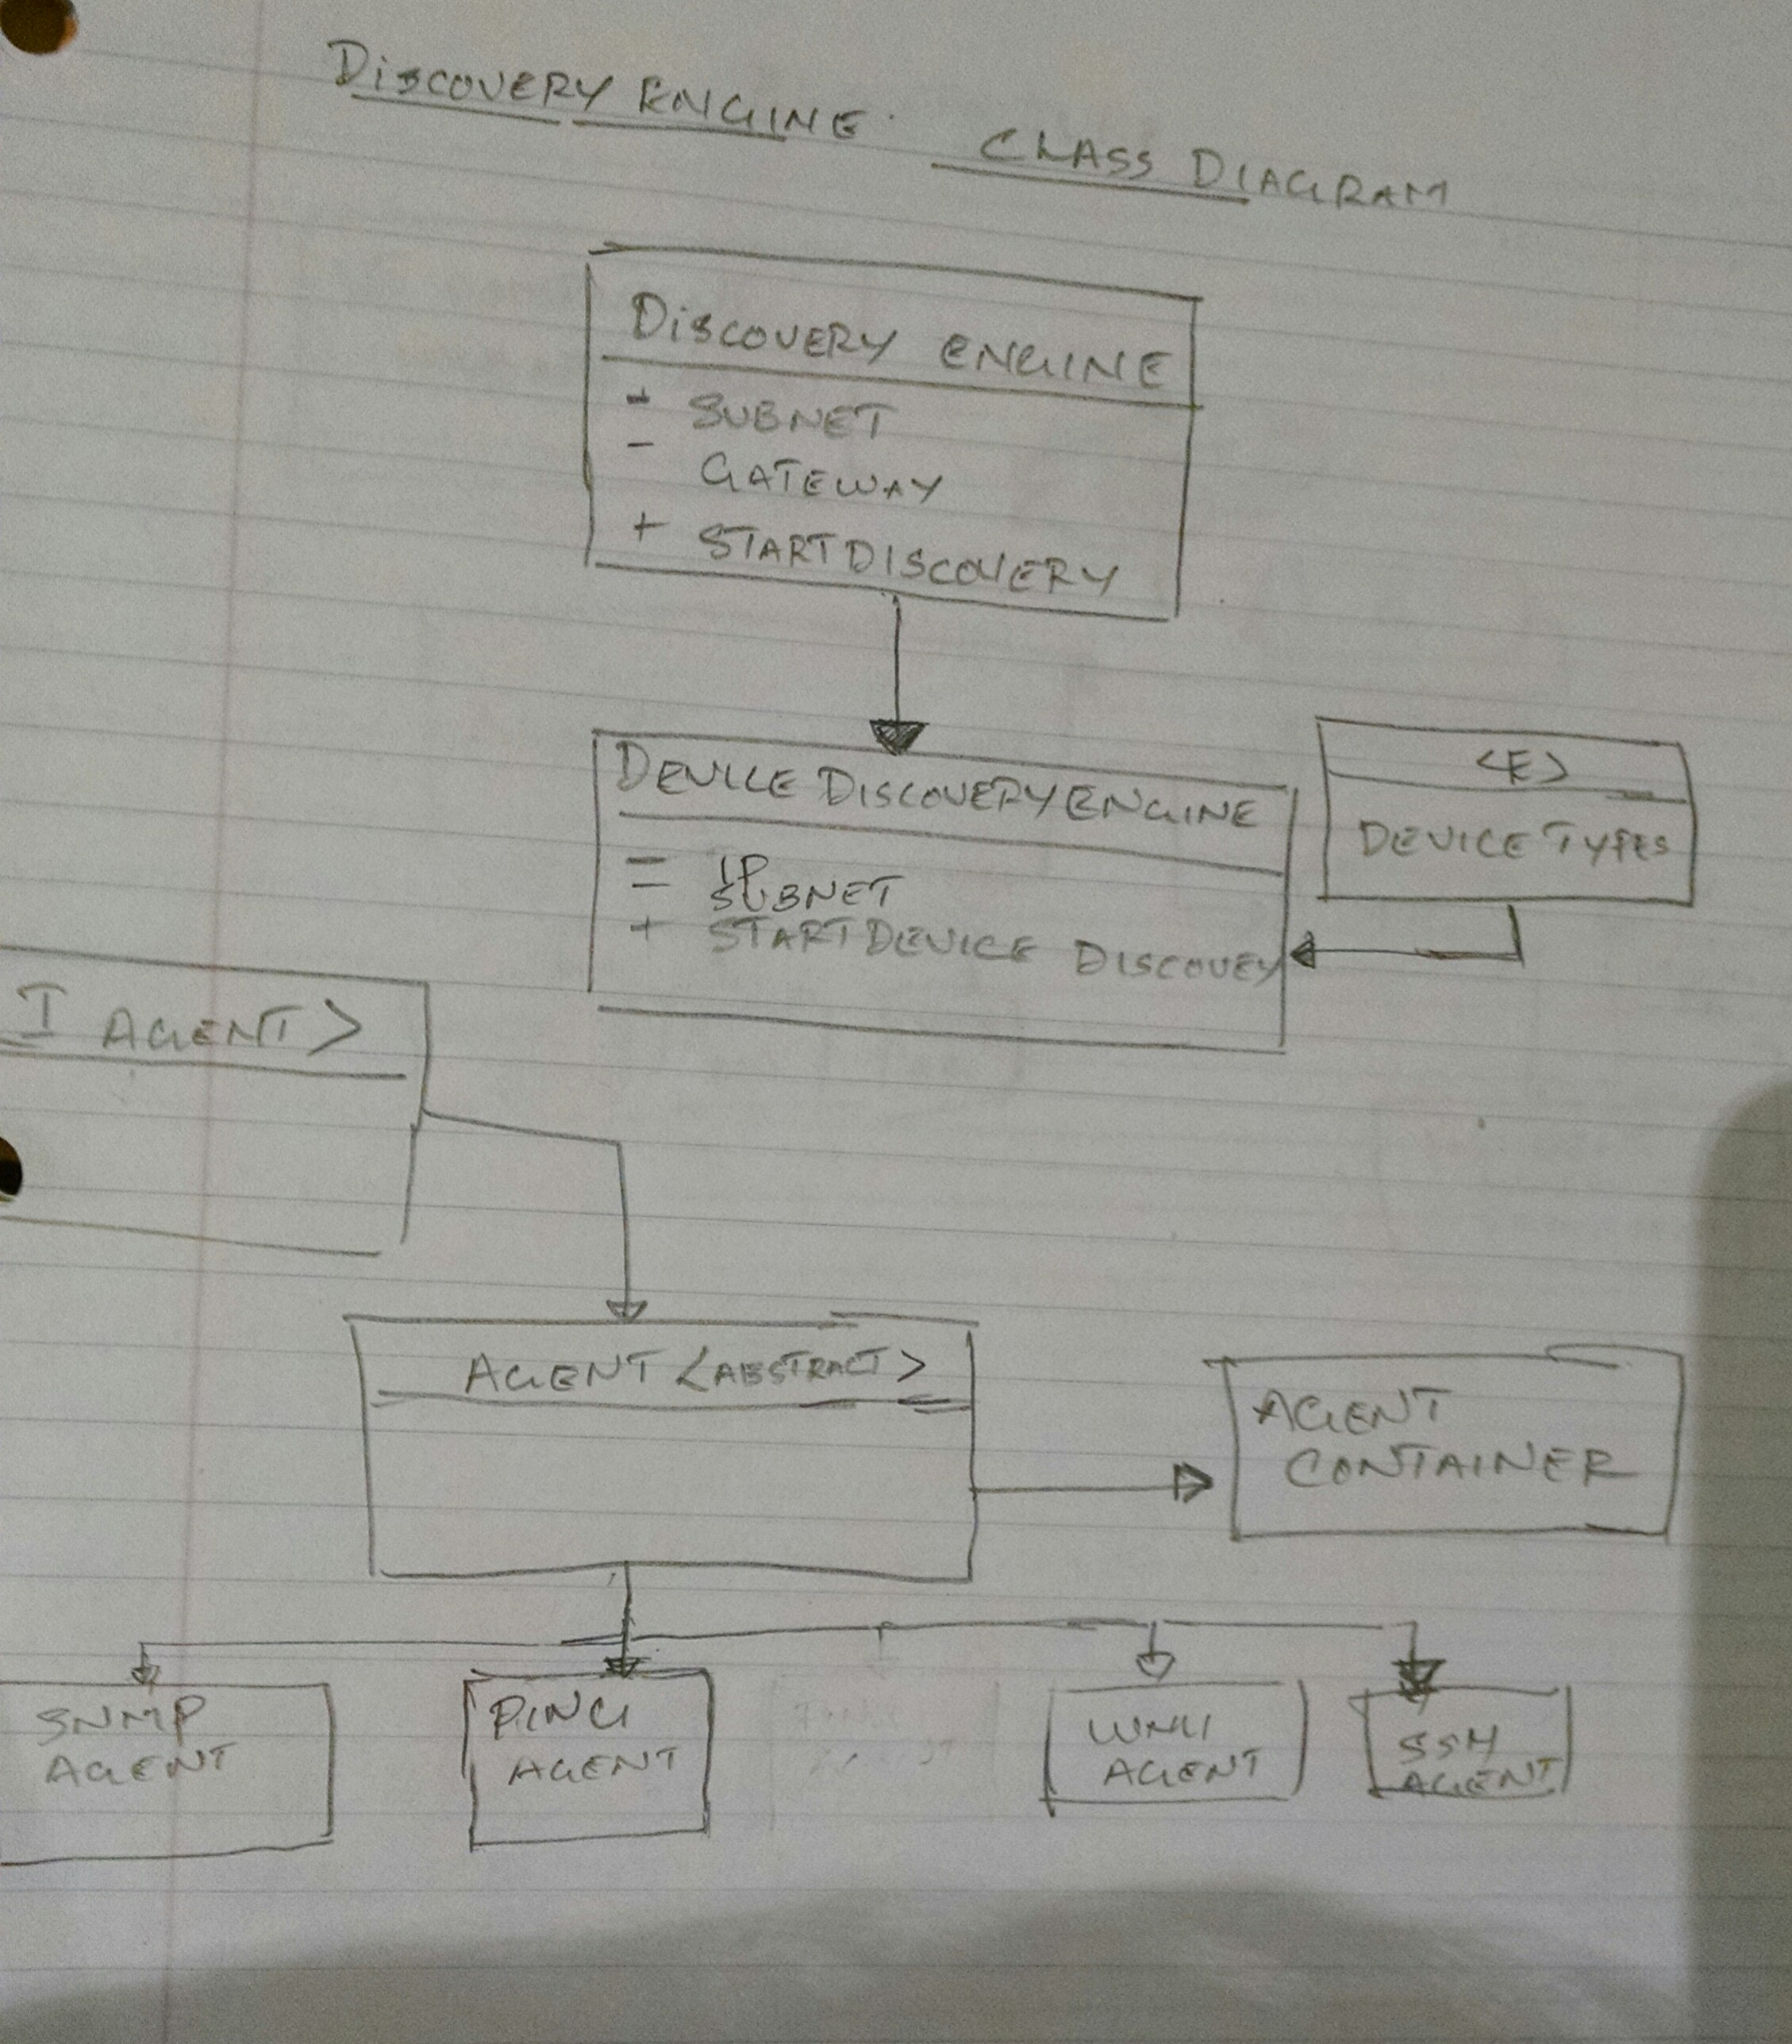 DISCOVERY ENGINE CLASS DIAGRAM
DISCOVERY ENGINE
- SUBNET
- GATEWAY
+ START DISCOVERY
DEVICE DISCOVERY ENGINE
- IP
- SUBNET
+ START DEVICE DISCOVEY
<E>
DEVICE TYPES
I AGENT >
AGENT <ABSTRACT>
AGENT
CONTAINER
SNMP
AGENT
PING
AGENT
AGENT
SSH
AGENT